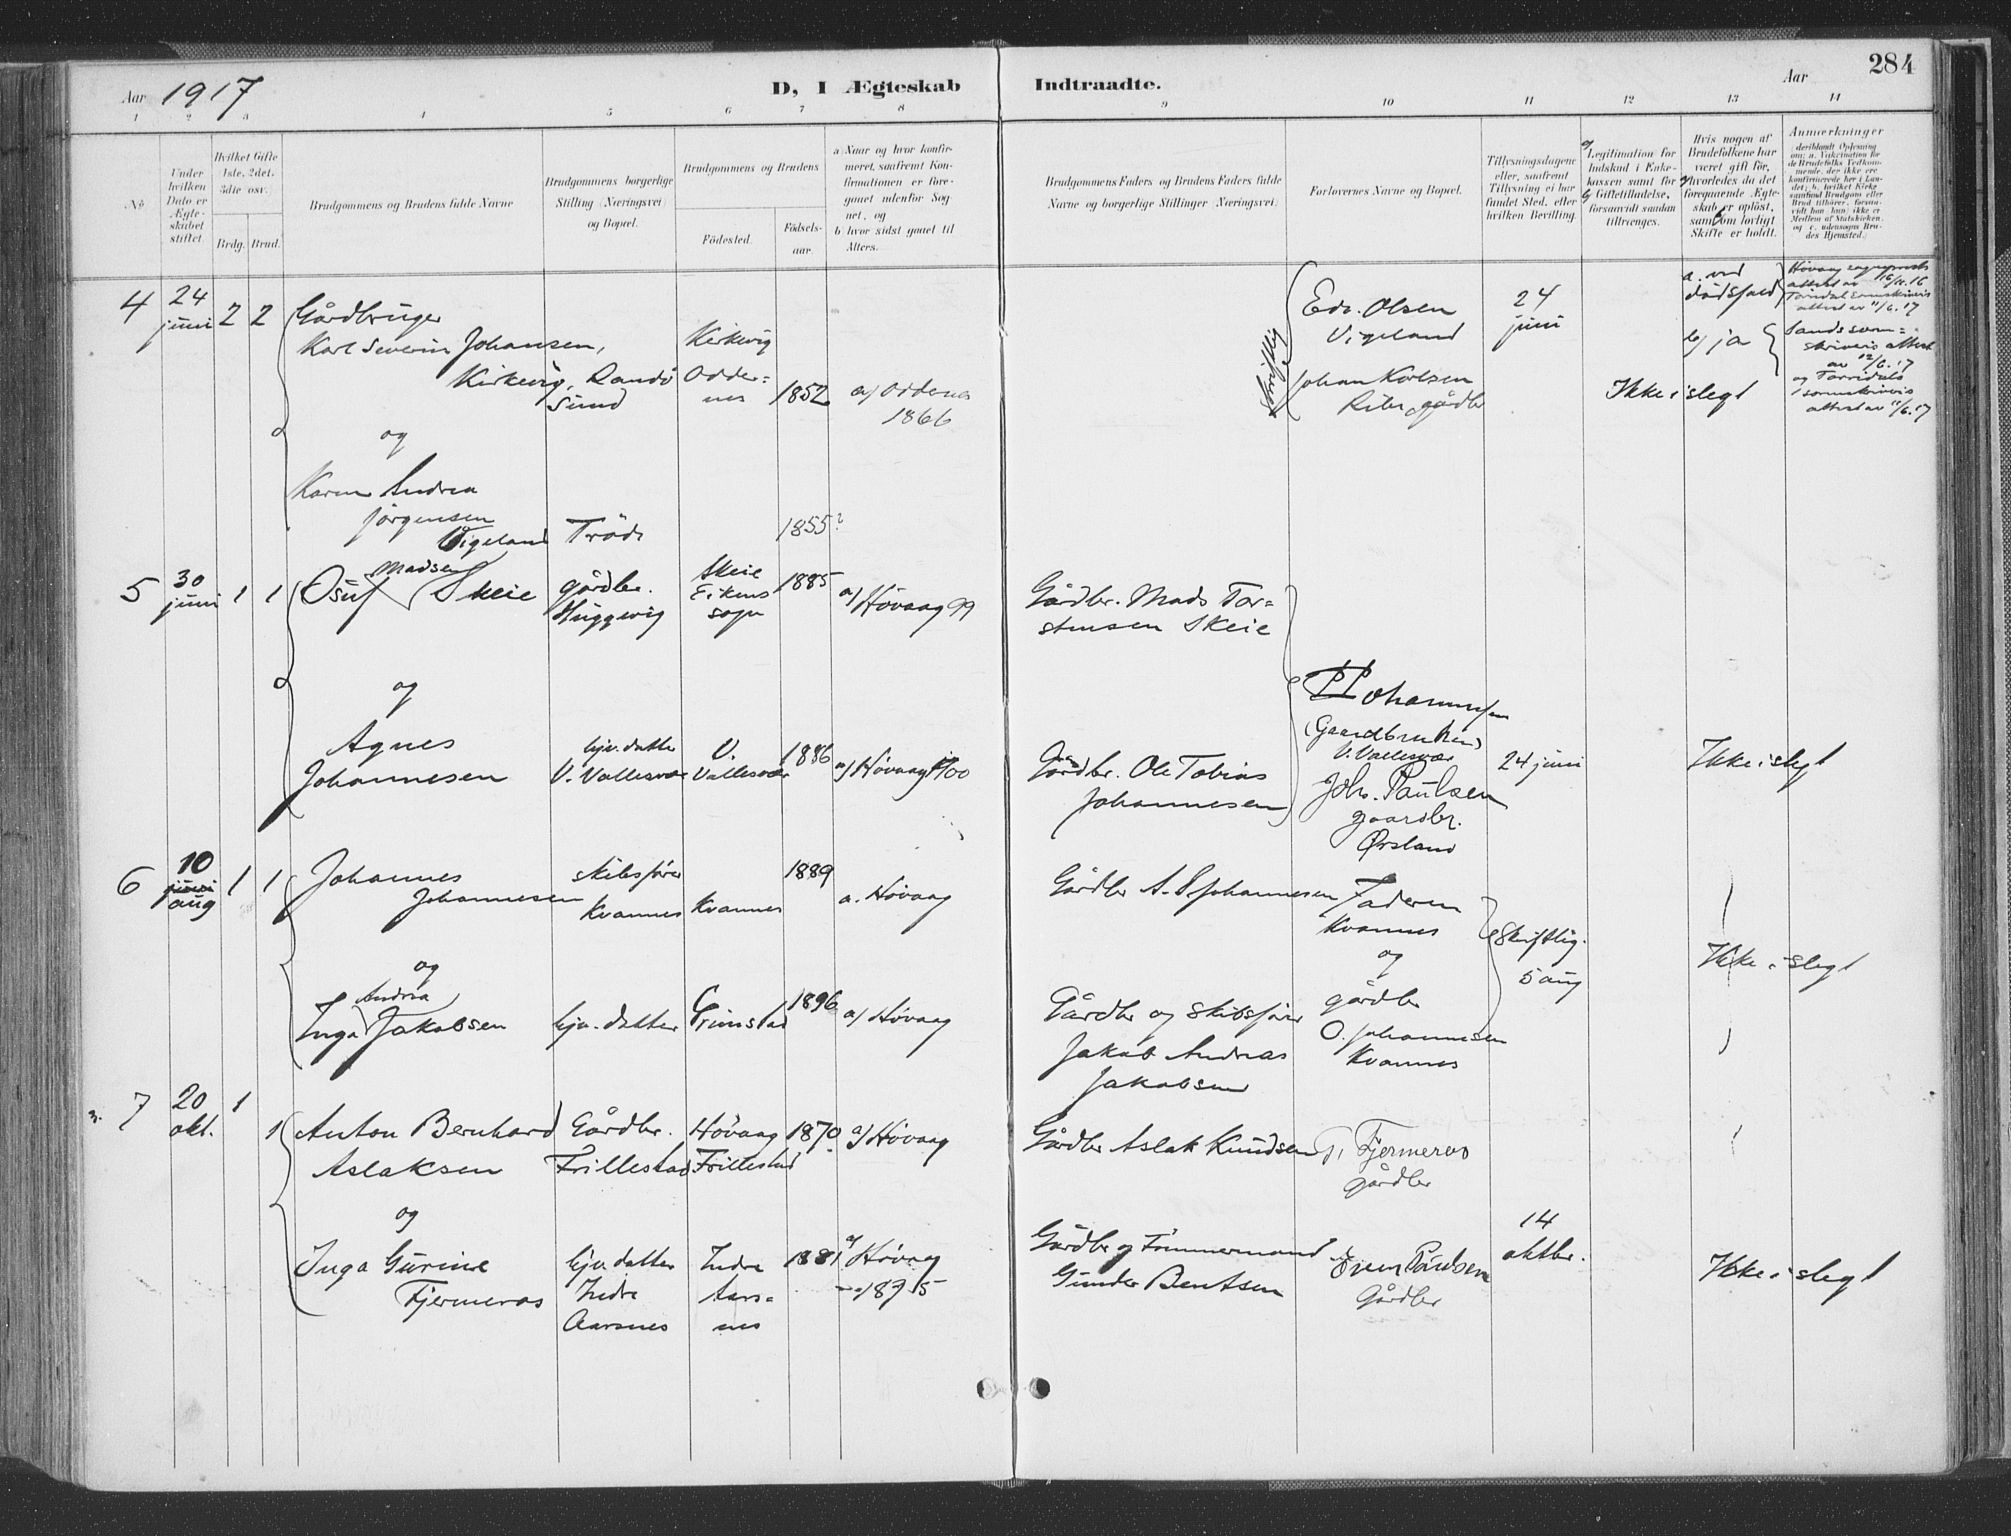 Aar 1917
D, I Ægteskab Indtraadte.
Aar
284
1 2 3 4 5 6 7 8 9 10 11 12 13 14
No
Under hvilken Dato er Ægteskabet stiftet.
Hvilket Gifte 1ste, 2det, 3die osv.
Brdg. Brud.
Brudgommens og Brudens fulde Navne
Brudgommens borgerlige Stilling (Næringsvei) og Bopæl.
Brudgommens og Brudens
Fødested.
Fødselsaar.
a Naar og hvor konfirmeret, saafremt Konfirmationen er foregaaet udenfor Sognet, og
b hvor sidst gaaet til Alters.
Brudgommens Faders og Brudens Faders fulde Navne og borgerlige Stillinger (Næringsvei)
Forlovernes Navne og Bopæl.
Tillysningsdagene eller, saafremt Tillysning ei har fundet Sted, efter hvilken Bevilling.
Legitimation for Indskud i Enkekassen samt for Giftetilladelse, forsaavidt saadan tiltrænges.
Hvis nogen af Brudefolkene har været gift før, hvorledes da det foregaaende Ægteskab er opløst, samt om lovligt Skifte er holdt.
Anmærkninger
4 24 juni 2 2
Gårdbruger
Karl Severin Johansen,
Kirkevig, Randösund
Kirkevig
Oddernes
1852
a/ Oddernes
1866
Skriftlig
Edv. Olsen
Vigeland
Johan Karlsen
gårdbr
24 juni
Ikke i slegt
a. ved dödsfald
b/ ja
attest av 11/6.17
attest av 12/6.17
og Torridals
attest av 11/6.17
og
Karen Andrea
Jörgensen
Vigeland
1855?
5 30 juni 1 1
Osuf Madsen Skeie
gårdbr.
Skeie
Eikens sogn
1885
a/ Hövaag 99
Gårdbr. Mads Torstensen Skeie
og
Agnes
Johannesen
hjv. datter
V. Vallesvær
V. Vallesvær
1886
a/ Hövaag 1900
Gårdbr. Ole Tobias
Johannesen
Johannesen
(Gaardbruker)
V. Vallesvær
Joh. Paulsen
gaardbr.
Ørsland
24 juni
Ikke i slegt
6 10 juni aug 1 1
Johannes
Johannesen
skibsförer
Kvannes
Kvannes
1889
a. Hövaag
Gårdbr A. Johannesen
Faderen
Kvannes
og
gårdbr
O. Johannesen
Kvannes
Skriftlig.
5 aug
Ikke i slegt
og
Inga Andrea Jakobsen
hjv. datter
Grimstad
1896
a/ Hövaag
Gårdbr og skibsförer
Jakob Andreas
Jakobsen
7 20 okt. 1 1
Anton Bernhard
Aslaksen
Gårdbr.
Frillestad
Hövaag
Frillestad
1870
a/ Hövaag
Gårdbr Aslak Knudsen
Fjermeros
gårdbr
og
Inga Gurine
Fjermeros
hjv datter
Indre
Aarsnes
Indre
Aarsnes
1881
a/ Hövaag
1895
Gårdbr og Tömmermand
Gunder Bentsen
Paulsen
Gårdbr
14 oktbr.
Ikke i slegt